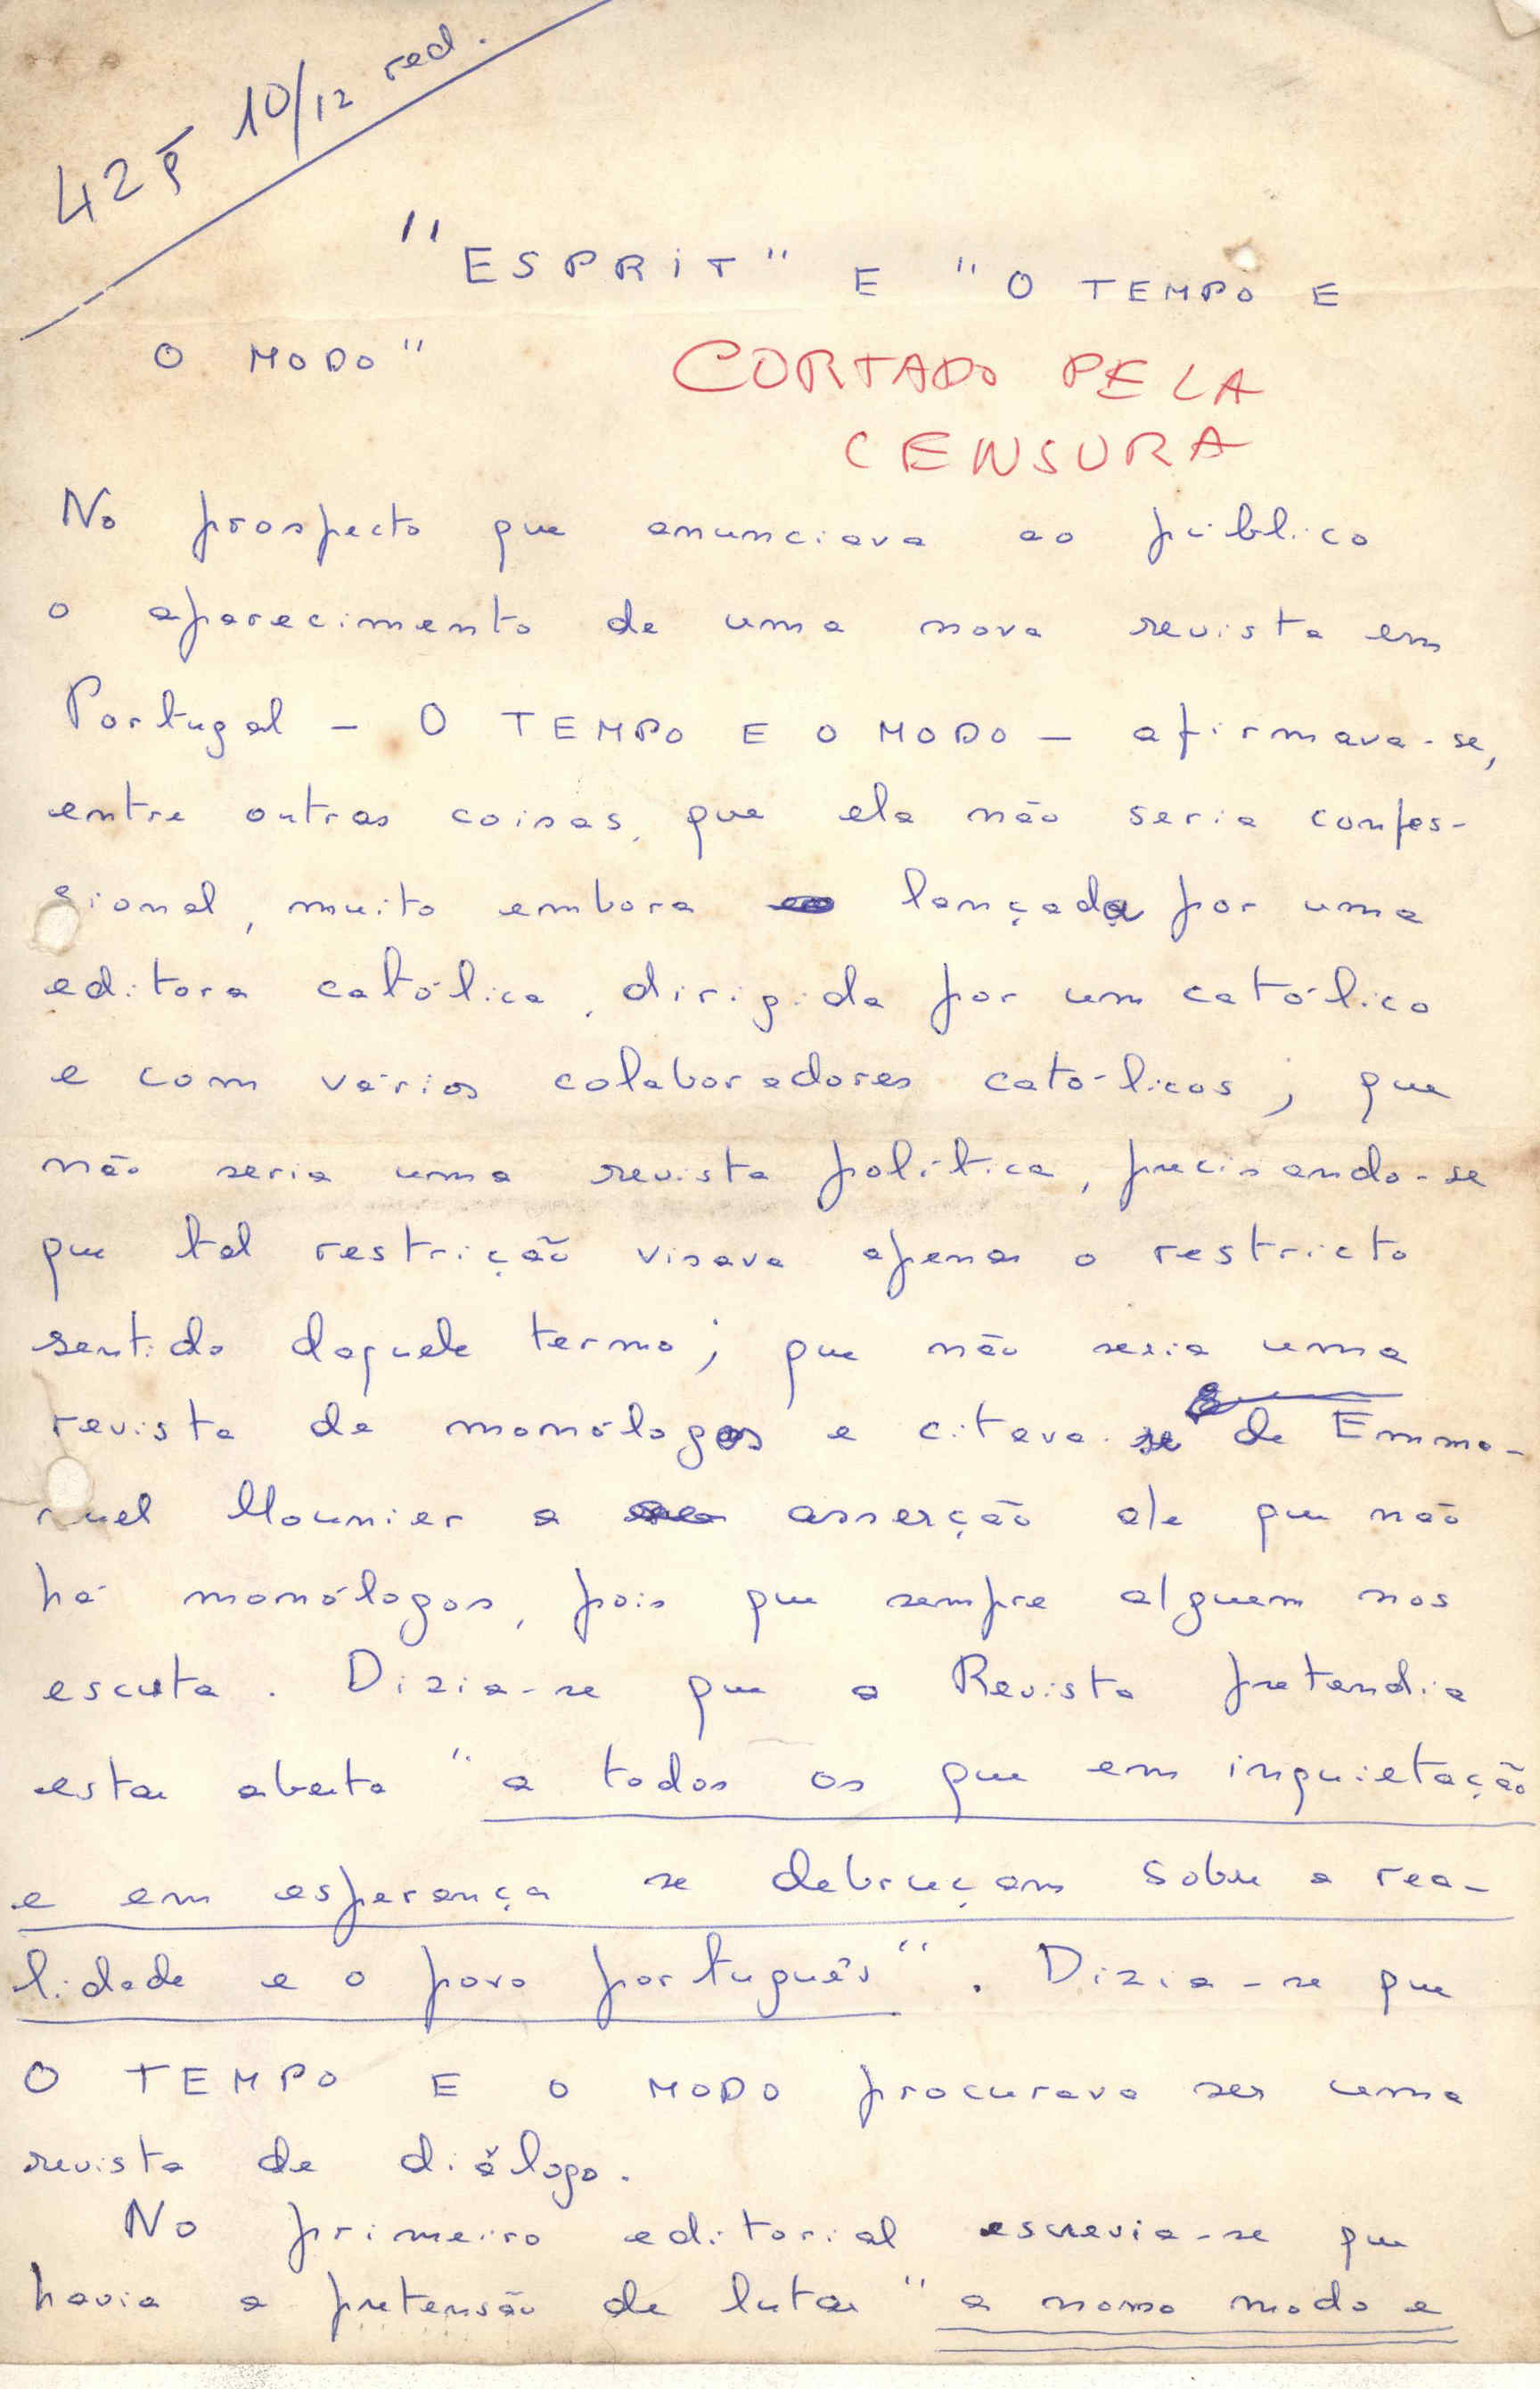 42 p 10/12 red.
"ESPRIT" E "O TEMPO E
O MODO"
CORTADO PELA
CENSURA
No prospecto que anunciava ao público
o aparecimento de uma nova revista em
Portugal - O TEMPO E O MODO - afirmava-se,
entre outras coisas, que ela não seria confes-
sional, muito embora lançada por uma
editora católica, dirigida por um católico
e com vários colaboradores católicos; que
não seria uma revista política, precisando-se
que tal restrição visava apenas o restricto
sentido daquele termo; que não seria uma
revista de monólogos e citava-se de Emma-
nuel Mounier a asserção de que não
há monólogos, pois que sempre alguem nos
escuta. Dizia-se que a Revista pretendia
estar aberta "a todos os que em inquietação
e em esperança se debruçam sobre a rea-
lidade e o povo português". Dizia-se que
O TEMPO E O MODO procurava ser uma
revista de diálogo.
No primeiro editorial escrevia-se que
havia a pretensão de lutar "a nosso modo e